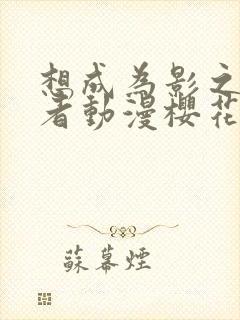 想成为影之
者動漫櫻花
蘇幕煙